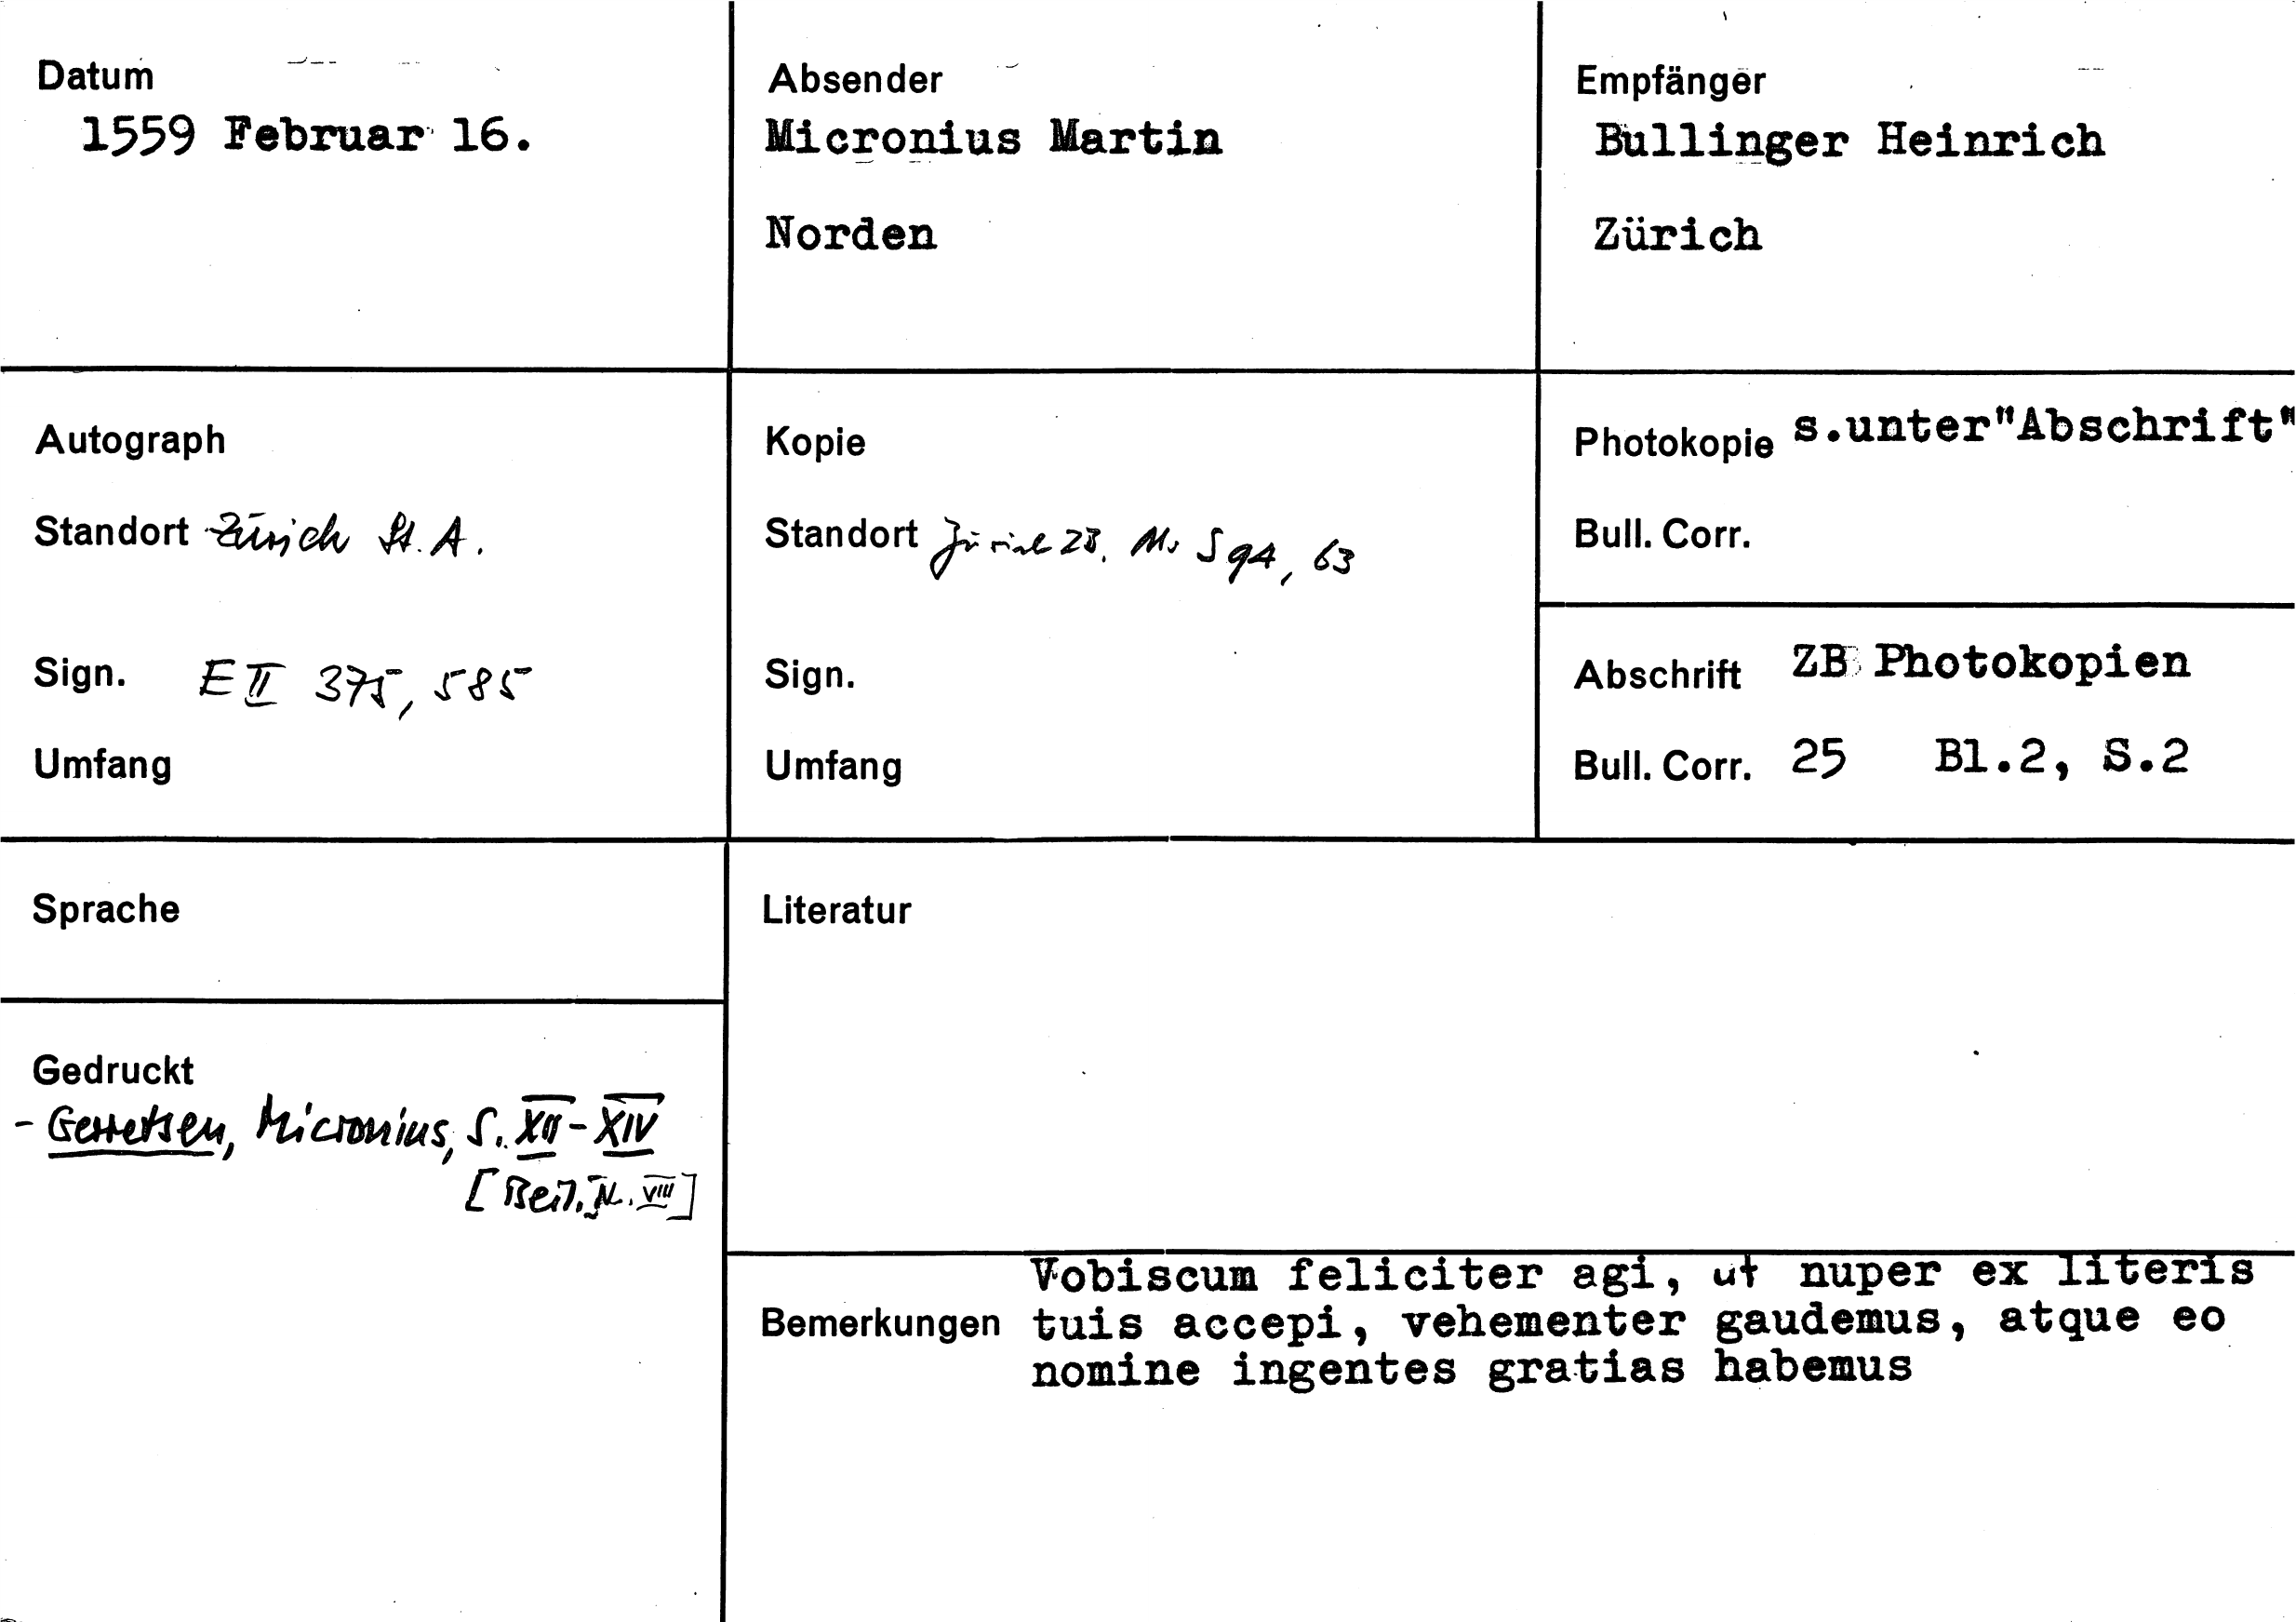 Datum
1559 Februar 16.
Absender
Micronius Martin
Norden
Empfänger
Bullinger Heinrich
Zürich
Autograph
Standort Zürich St. A.
Sign. E II 375, 585
Umfang
Kopie
Standort Zürich ZB, Ms S 94, 63
Sign.
Umfang
Photokopie s.unter"Abschrift"
Bull. Corr.
Abschrift ZB Photokopien
Bull. Corr. 25 Bl.2, S.2
Sprache
Literatur
Gedruckt
- Gerretsen, Micronius, S. XII-XIV
[Beil. N. VIII]
Vobiscum feliciter agi, ut nuper ex literis
Bemerkungen tuis accepi, vehementer gaudemus, atque eo
nomine ingentes gratias habemus